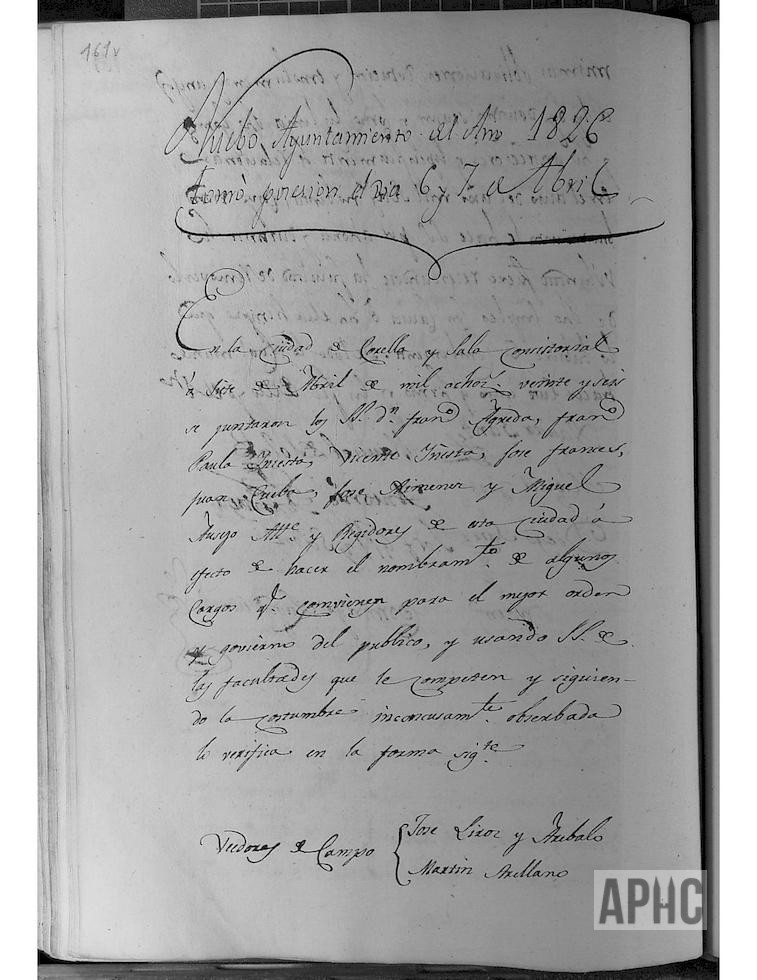 161v
Nuebo Ayuntamiento del Año 1826
tomó posesion el dia 6 y 7 de Abril
En la Ciudad de Corella y Sala Consistorial
á siete de Abril de mil ochoz.^s veinte y seis
se juntaron los SS. d.^n Fran.^co Agreda, Fran.^co
Paula Yniesta, Vicente Yñesta, Jose Frances,
Juan Cueba, Jose Ximenez y Miguel
Ausejo Alt.^e y Regidores de esta Ciudad á
efecto de hacer el nombram.^to de algunos
Cargos q.^e combienen para el mejor orden
y govierno del publico, y usando SS. de
las facultades que le competen y siguien-
do la costumbre inconcusam.^te obserbada
lo verifica en la forma sig.^te
Veedores de Campo { Jose Liroz y Arebalo
Martin Arellano
APHC